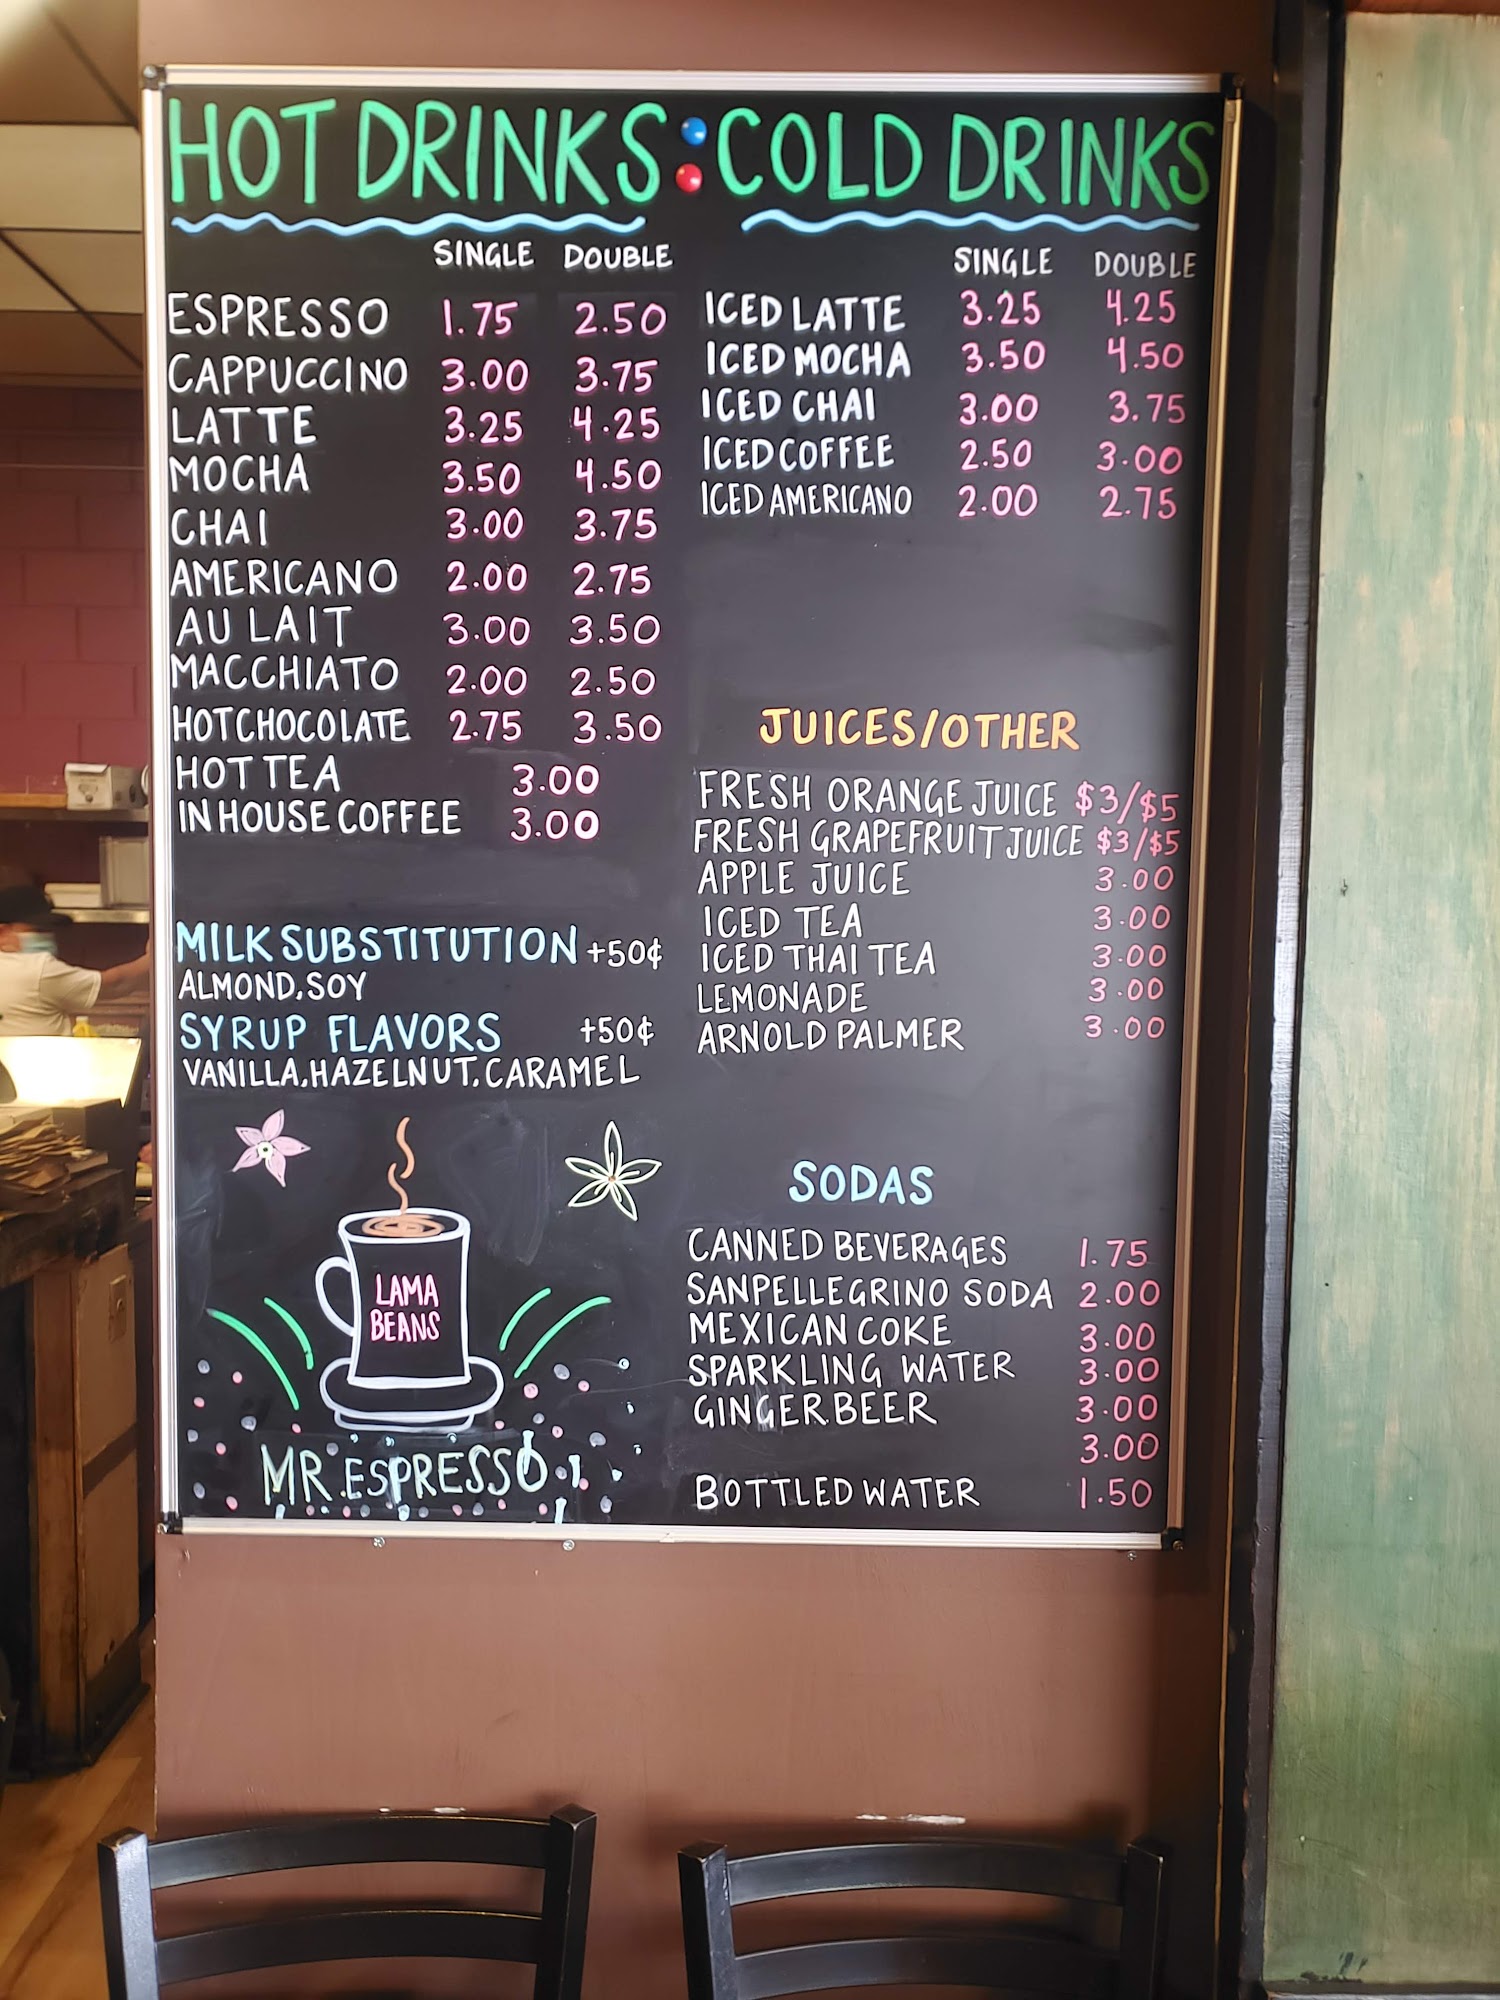 HOT DRINKS : COLD DRINKS
SINGLE DOUBLE
ESPRESSO 1.75 2.50
CAPPUCCINO 3.00 3.75
LATTE 3.25 4.25
MOCHA 3.50 4.50
CHAI 3.00 3.75
AMERICANO 2.00 2.75
AU LAIT 3.00 3.50
MACCHIATO 2.00 2.50
HOT CHOCOLATE 2.75 3.50
HOT TEA 3.00
IN HOUSE COFFEE 3.00
MILK SUBSTITUTION +50¢
ALMOND, SOY
SYRUP FLAVORS +50¢
VANILLA, HAZELNUT, CARAMEL
LAMA
BEANS
MR. ESPRESSO
SINGLE DOUBLE
ICED LATTE 3.25 4.25
ICED MOCHA 3.50 4.50
ICED CHAI 3.00 3.75
ICED COFFEE 2.50 3.00
ICED AMERICANO 2.00 2.75
JUICES/OTHER
FRESH ORANGE JUICE $3/$5
FRESH GRAPEFRUIT JUICE $3/$5
APPLE JUICE 3.00
ICED TEA 3.00
ICED THAI TEA 3.00
LEMONADE 3.00
ARNOLD PALMER 3.00
SODAS
CANNED BEVERAGES 1.75
SANPELLEGRINO SODA 2.00
MEXICAN COKE 3.00
SPARKLING WATER 3.00
GINGER BEER 3.00
3.00
BOTTLED WATER 1.50